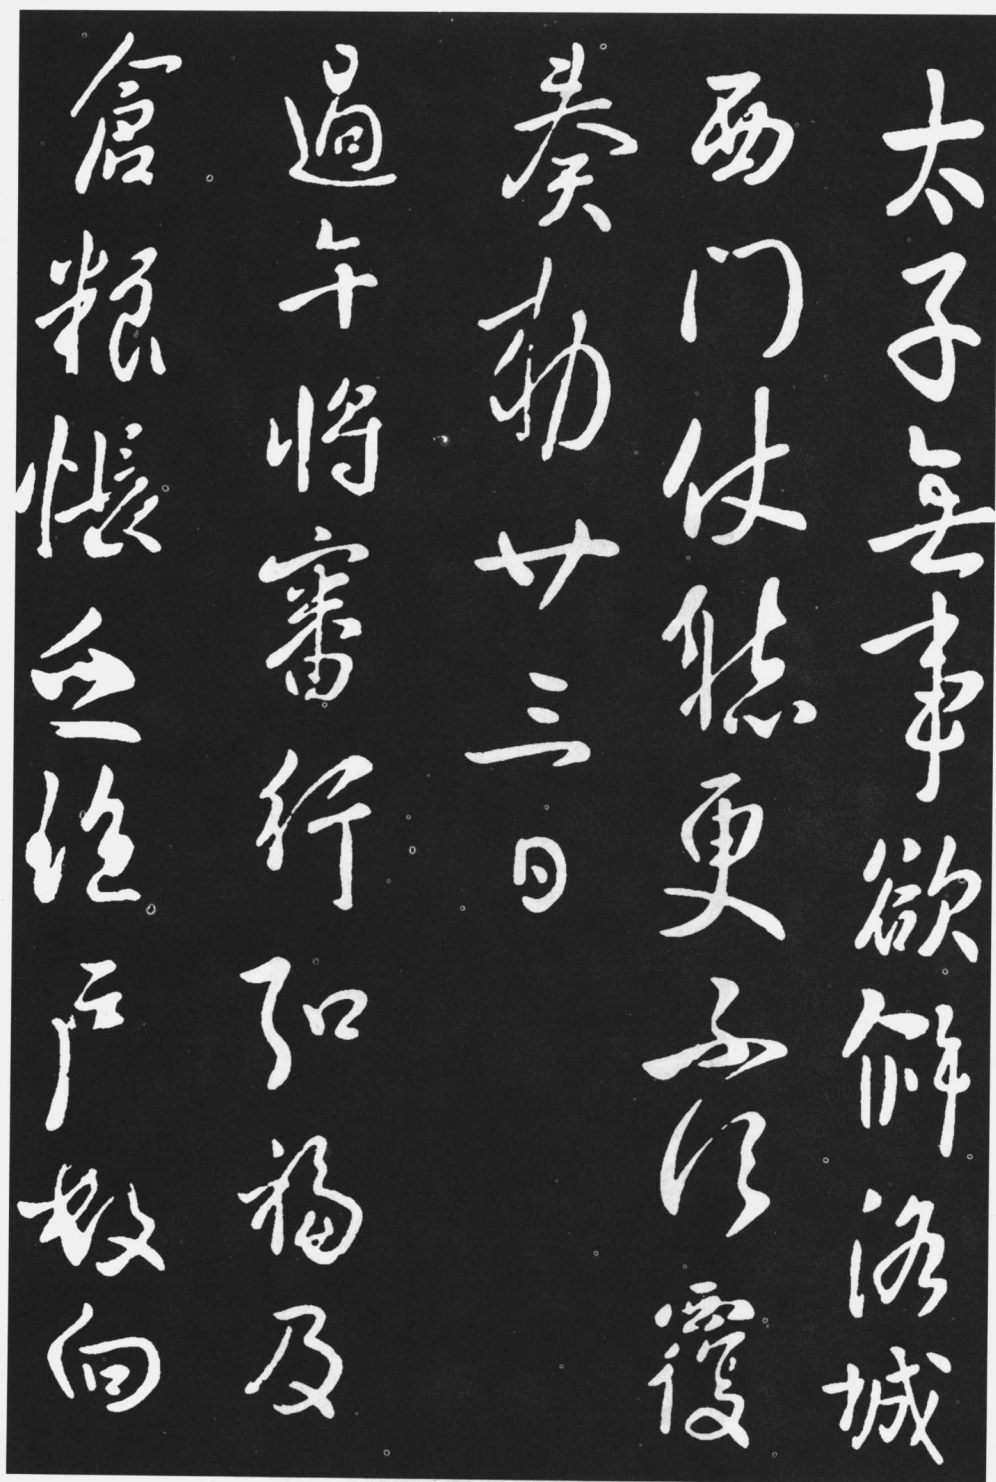 太子無事欲解洛城
西門仗聽更不須覆
奏勅廿三日
過午將審行弘福及
倉粮帳亟總戶數向